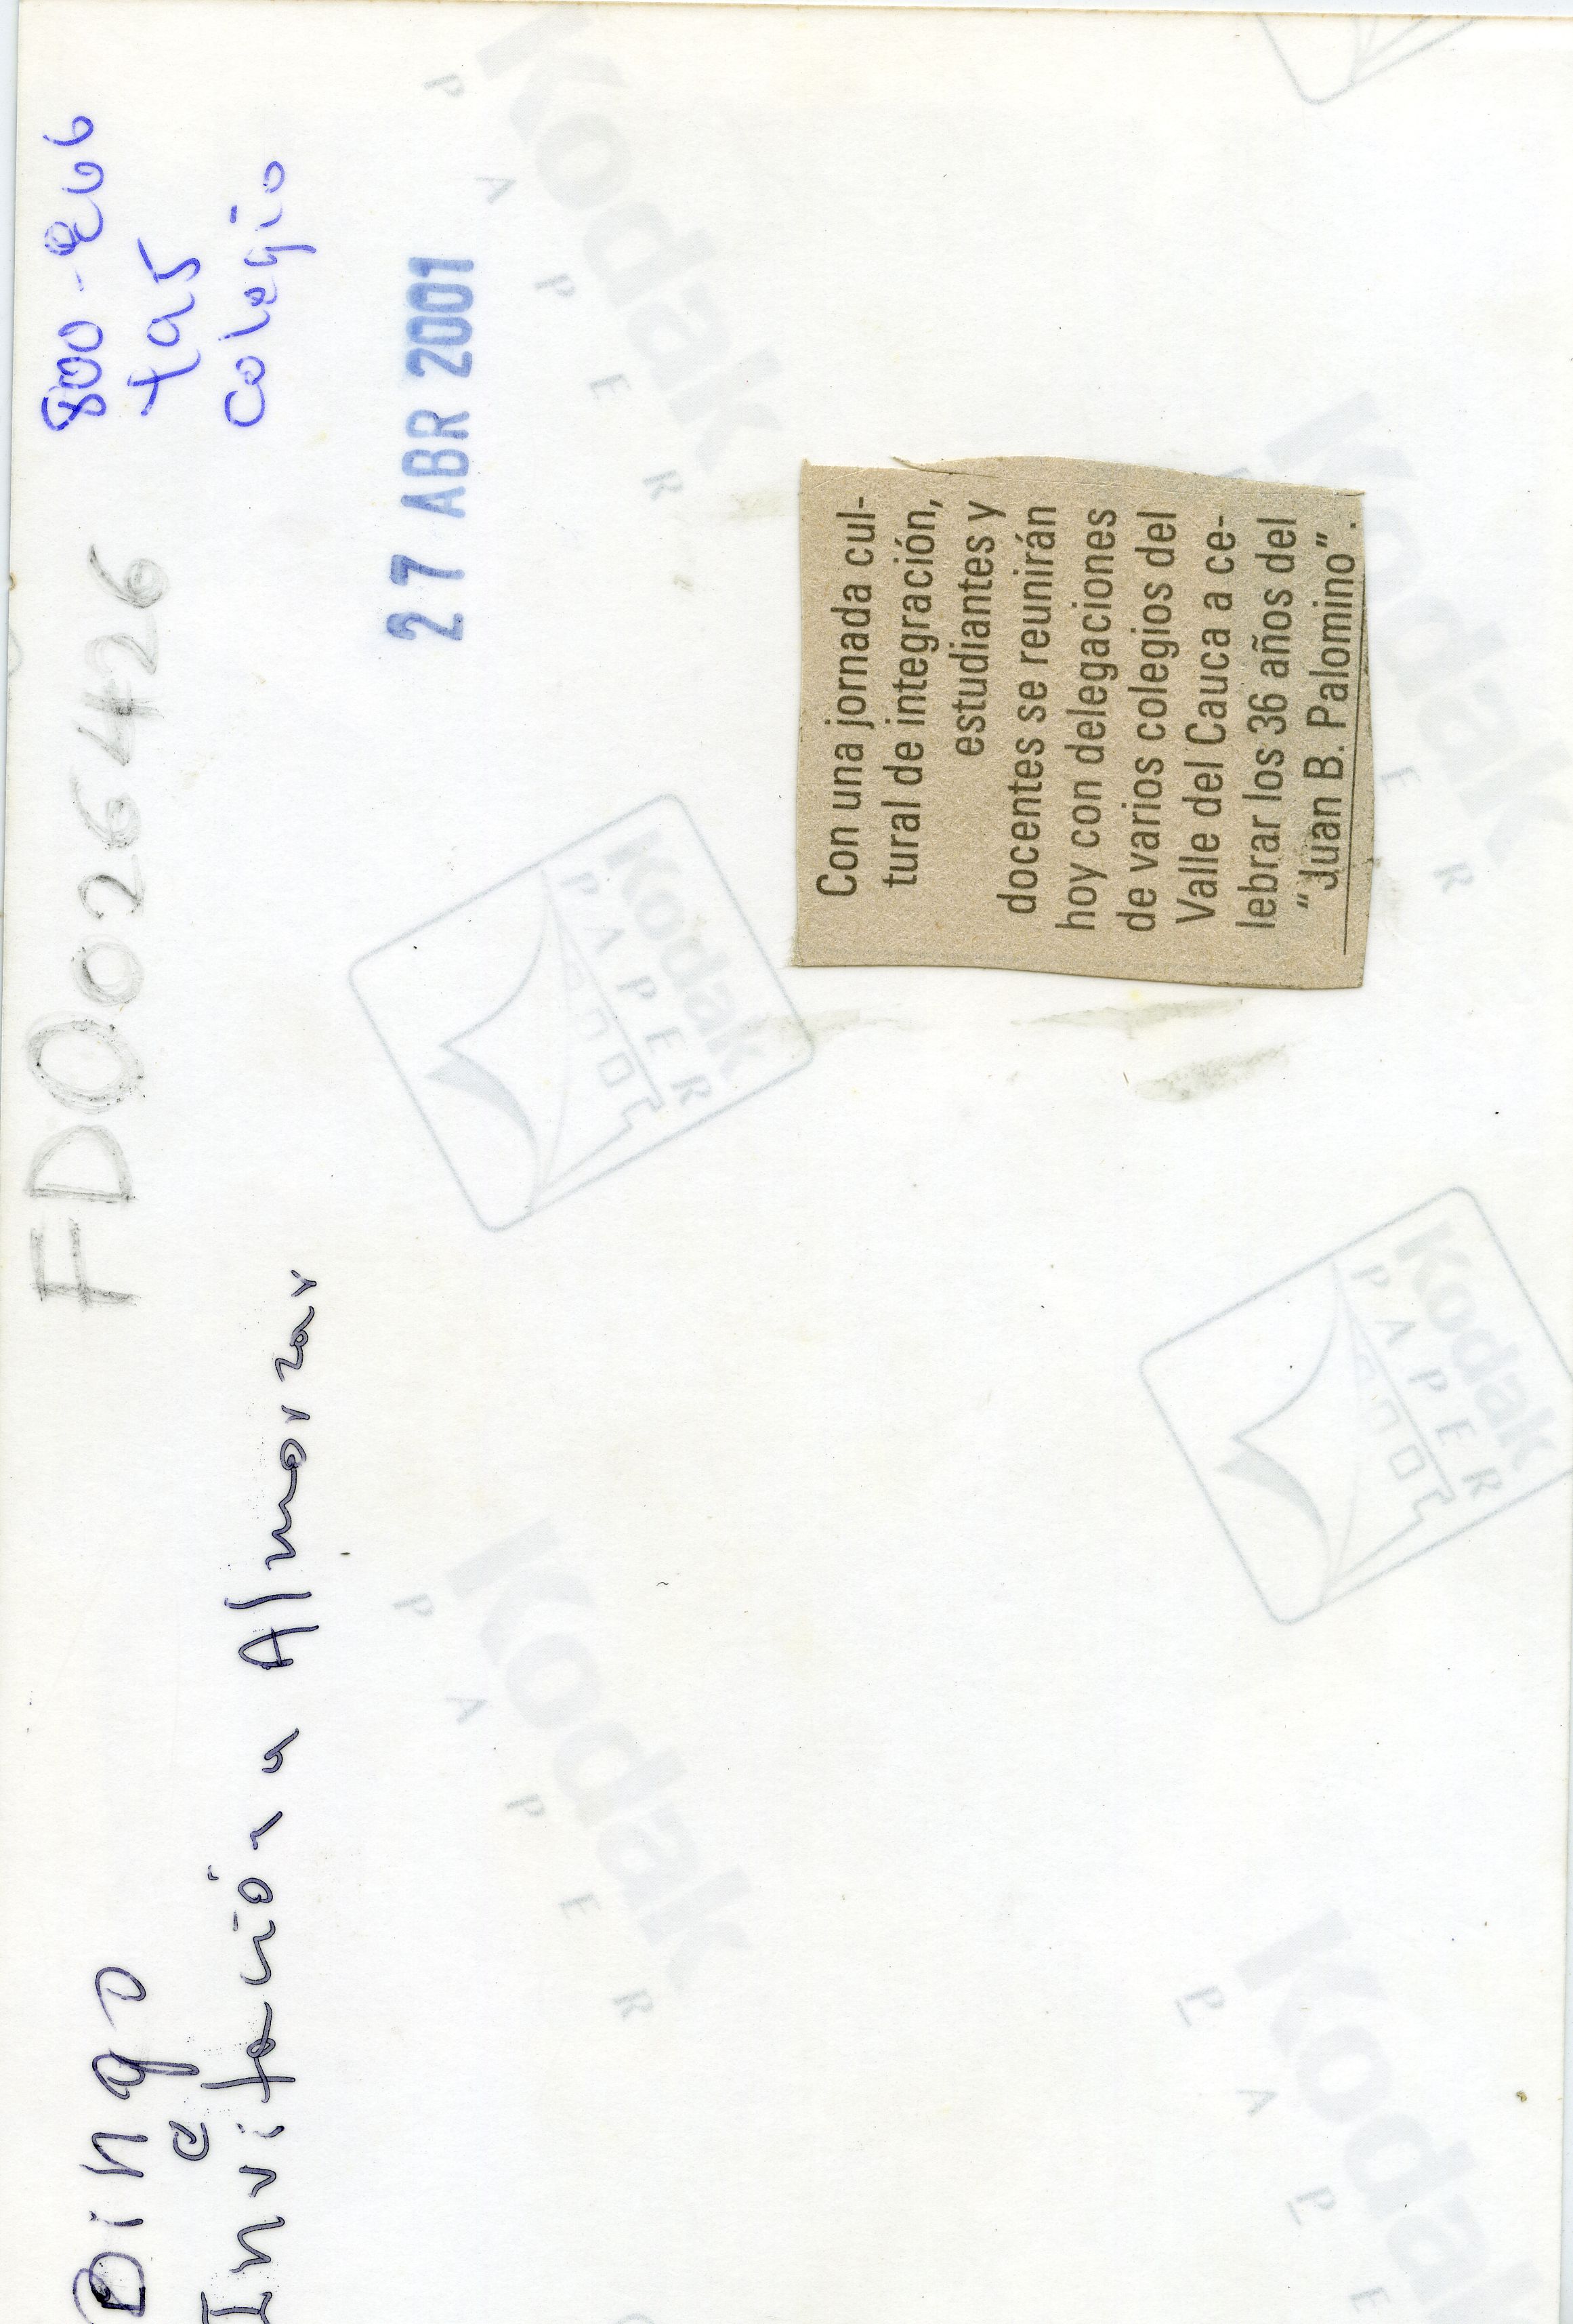 FD0026426
800-
Colegio
27 ABR 2001
Invitación a Almorzar
Con una jornada cul-
tural de integración,
estudiantes y
docentes se reunirán
hoy con delegaciones
de varios colegios del
Valle del Cauca a ce-
lebrar los 36 años del
“Juan B. Palomino”.
Kodak
PAPER
Kodak
PAPER
Kodak
PAPER
Kodak
PAPER
Kodak
PAPER
Kodak